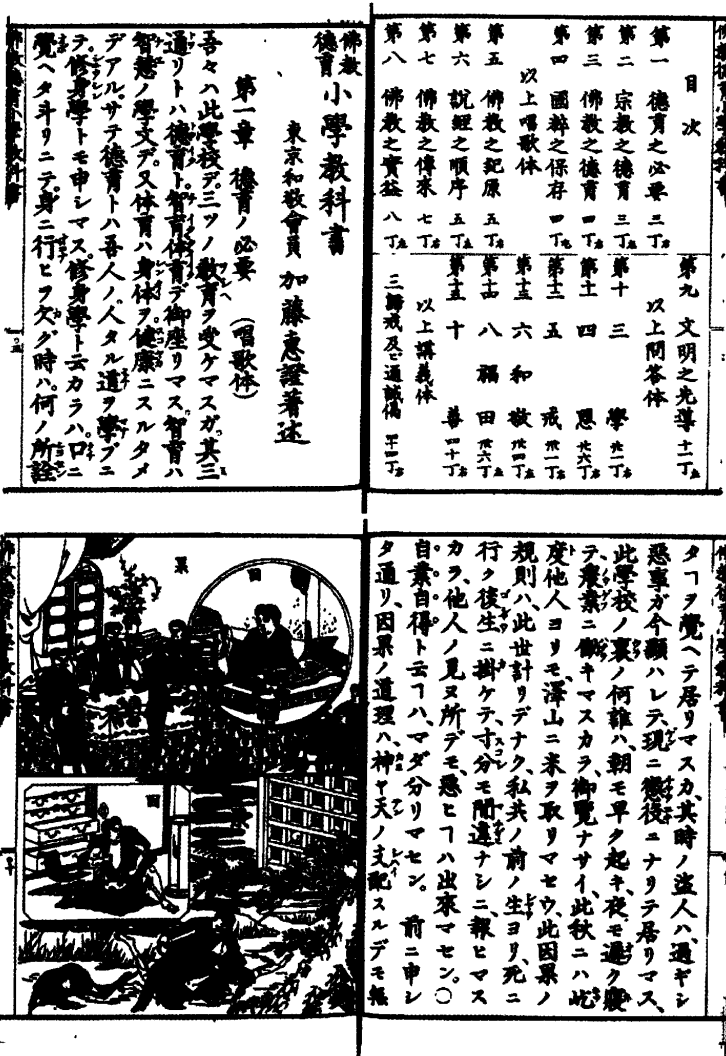 目次
第一 德育之必要 三丁
第二 宗教之德育 三丁
第三 佛教之德育 四丁
第四 國粹之保存 四丁
以上唱歌体
第五 佛教之紀原 五丁
第六 說經之順序 五丁
第七 佛教之傳來 七丁
第八 佛教之實益 八丁
第九 文明之先導 十一丁
以上問答体
第十 三學
第十一 四恩
第十二 五戒
第十三 六和敬
第十四 八福田
第十五 十善 四十丁
以上講義体
三歸戒及ビ通誡偈
佛教德育 小學教科書
東京和敬會員 加藤惠證著述
第一章 德育ノ必要 (唱歌体)
吾々ハ此學校デ、三ツノ教育ヲ受ケマスガ、其三
通リトハ、德育ト、智育体育デ御座リマス、智育ハ
智慧ノ學文デ、又体育ハ、身体ヲ健康ニスルタメ
デアル、サテ德育トハ吾人ノ、人タル道ヲ學ブニ
テ、修身學トモ申シマス、修身學ト云カラハ、口ニ
覺ヘタ斗リニテ、身ニ行ヒヲ欠グ時ハ、何ノ所詮
タヿヲ覺ヘテ居リマスカ、其時ノ盜人ハ、過ギシ
惡事ガ今顯ハレテ、現ニ懲役ニナリテ居リマス、
此學校ノ裏ノ何誰ハ、朝モ早ク起キ、夜モ遲ク寢
テ農業ニ働キマスカラ、御覽ナサイ、此秋ニハ屹
度他人ヨリモ、澤山ニ米ヲ取リマセウ、此因果ノ
規則ハ、此世計リデナク、私共ノ前ノ生ヨリ、死ニ
行ク後生ニ掛ケテ、寸分モ間違ナシニ、報ヒマス
カラ、他人ノ見ヌ所デモ、惡ヒヿハ出來マセン。〇
自業自得ト云ヿハ、マダ分リマセン。 前ニ申シ
タ通リ、因果ノ道理ハ、神ヤ天ノ支配スルデモ無
果
因